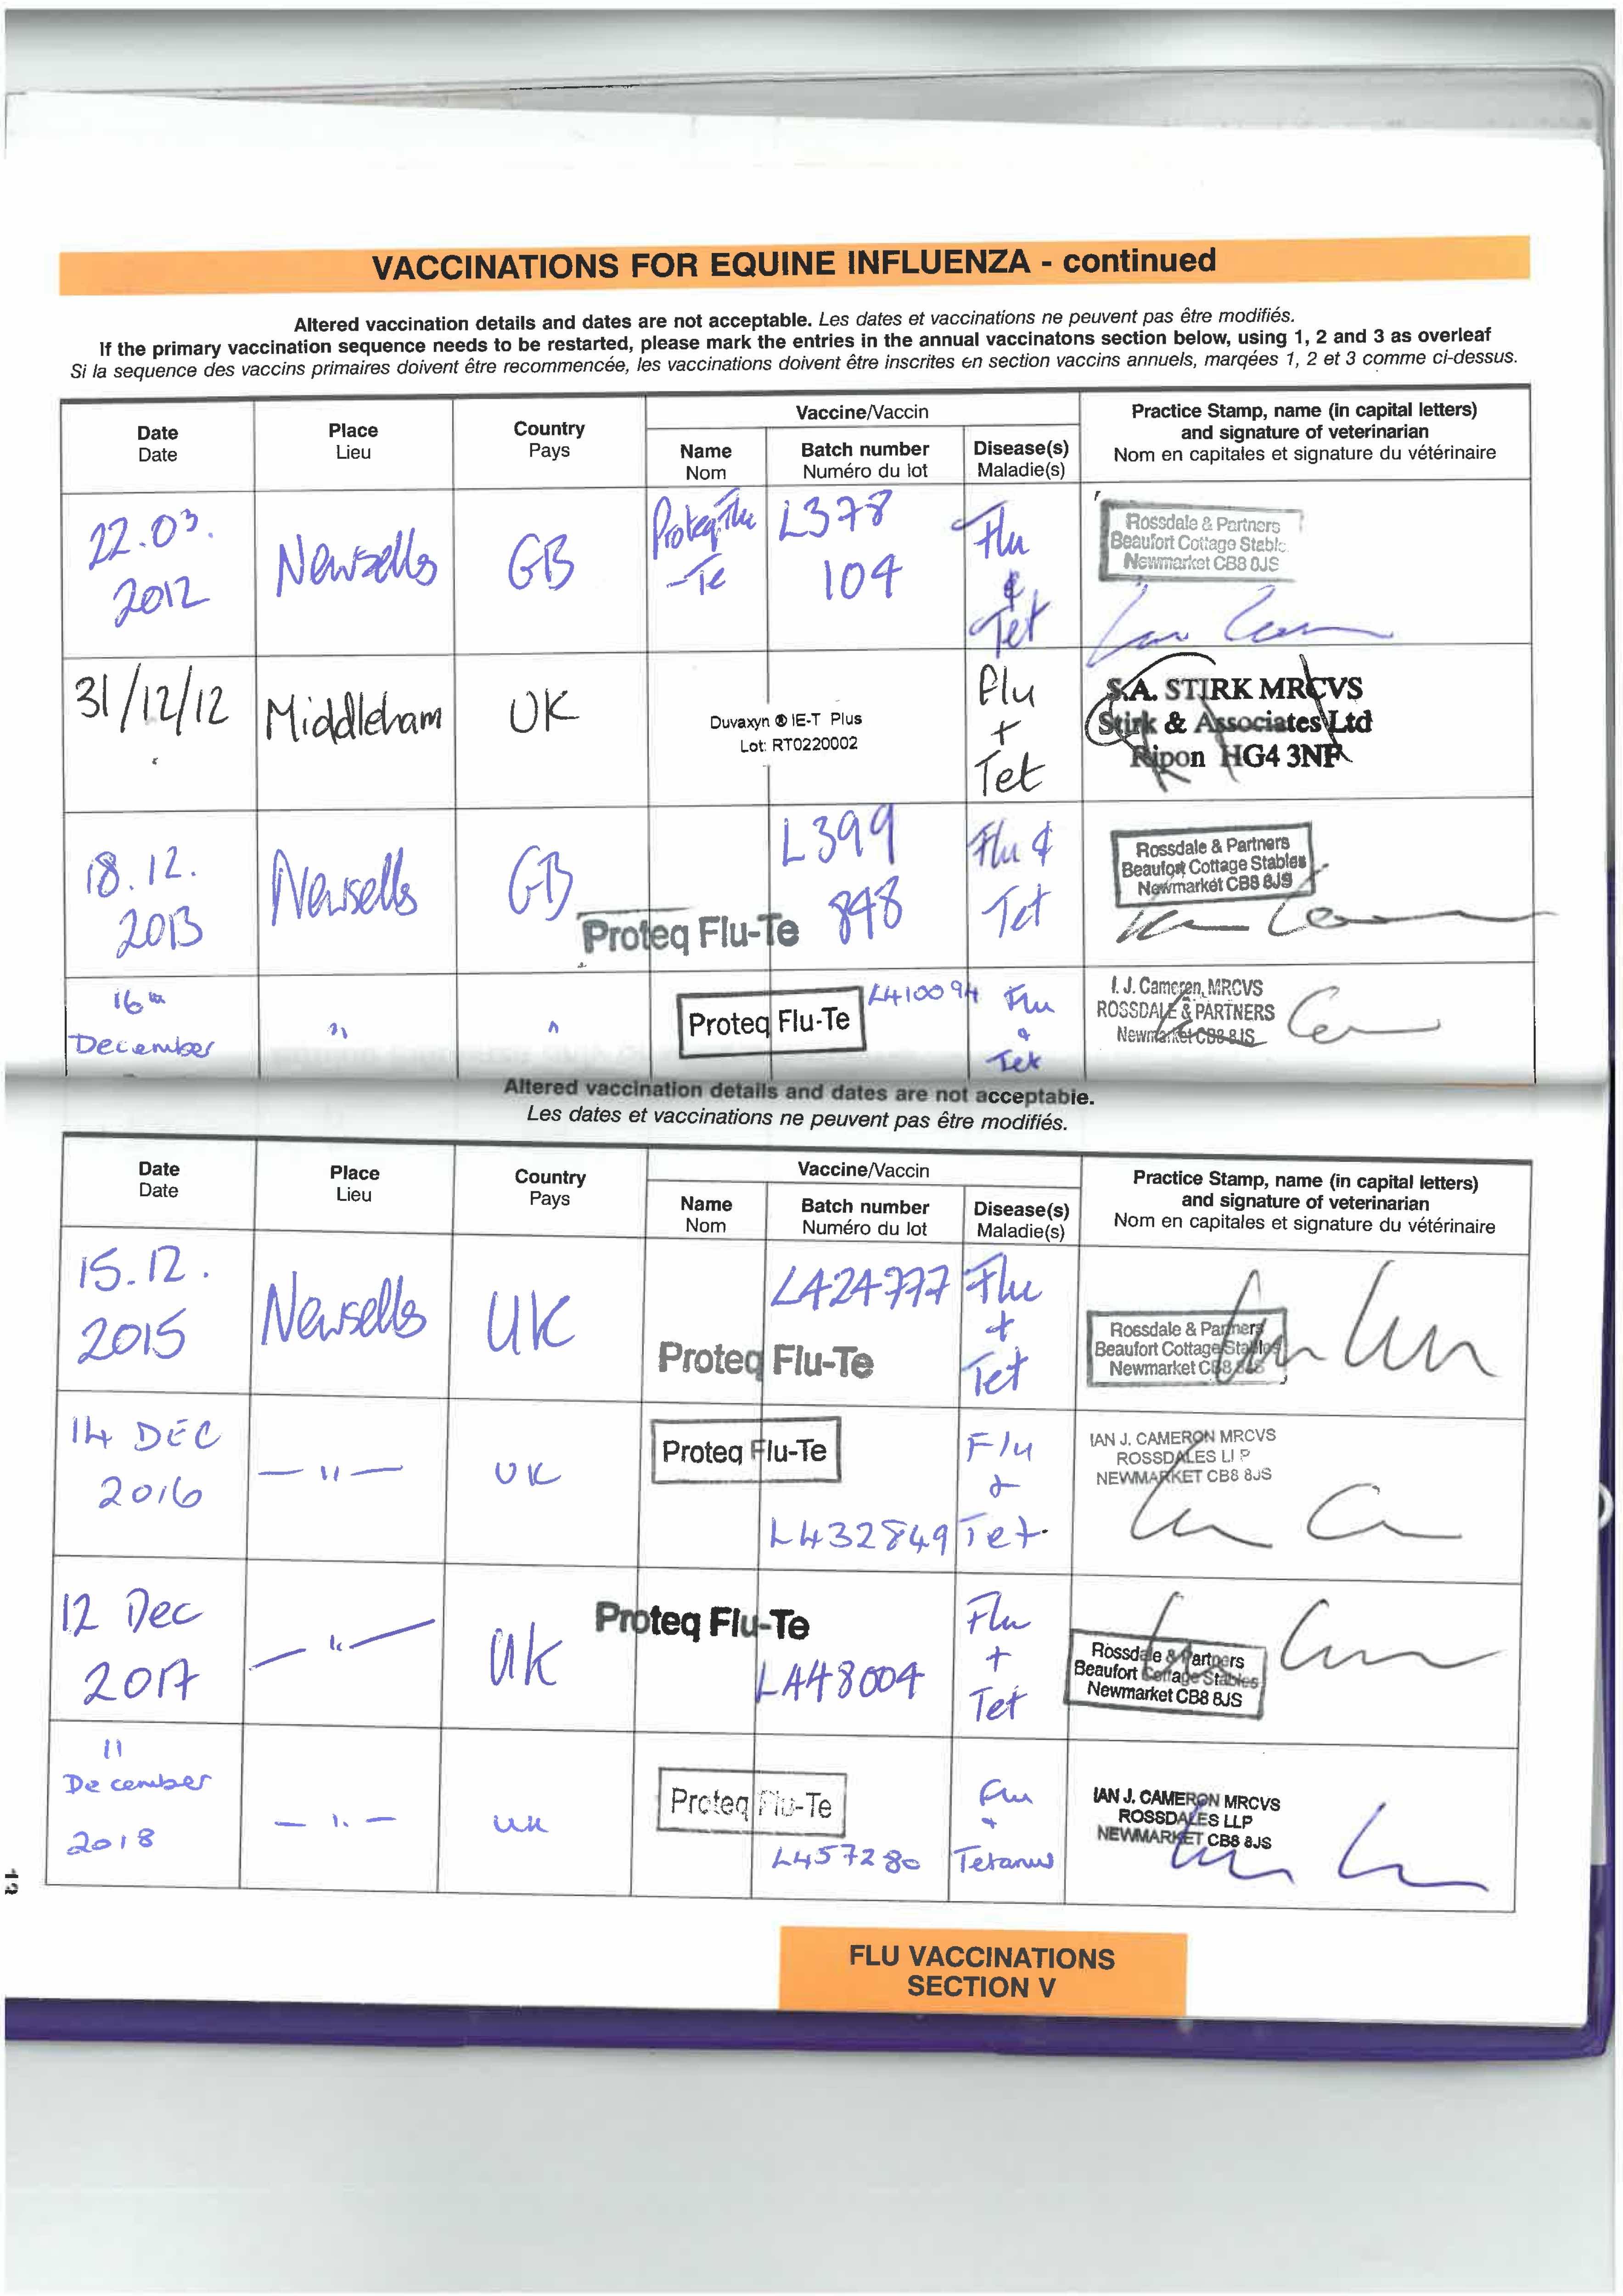 VACCINATIONS FOR EQUINE INFLUENZA - continued
Altered vaccination details and dates are not acceptable. Les dates et vaccinations ne peuvent pas être modifiés.
If the primary vaccination sequence needs to be restarted, please mark the entries in the annual vaccinatons section below, using 1, 2 and 3 as overleaf
Si la sequence des vaccins primaires doivent être recommencée, les vaccinations doivent être inscrites en section vaccins annuels, marqées 1, 2 et 3 comme ci-dessus.
Date
Date
Place
Lieu
Country
Pays
Vaccine/Vaccin
Name
Nom
Batch number
Numéro du lot
Disease(s)
Maladie(s)
Practice Stamp, name (in capital letters)
and signature of veterinarian
Nom en capitales et signature du vétérinaire
22.03.
2012
Newsells
GB
Proteq Flu
-Te
L378
104
Flu
&
Tet
Rossdale & Partners
Beaufort Cottage Stable
Newmarket CB8 0JS
31/12/12
Middleham
UK
Duvaxyn ® IE-T Plus
Lot: RT0220002
Flu
+
Tet
S.A. STIRK MRCVS
Stirk & Associates Ltd
Ripon HG4 3NP
18.12.
2013
Newsells
GB
Proteq Flu-Te
L399
848
Flu &
Tet
Rossdale & Partners
Beaufort Cottage Stables
Newmarket CB8 8JS
16th
December
"
"
Proteq Flu-Te
L410094
Flu
&
Tet
I. J. Cameron, MRCVS
ROSSDALE & PARTNERS
Newmarket CB8 8JS
Altered vaccination details and dates are not acceptable.
Les dates et vaccinations ne peuvent pas être modifiés.
Date
Date
Place
Lieu
Country
Pays
Vaccine/Vaccin
Name
Nom
Batch number
Numéro du lot
Disease(s)
Maladie(s)
Practice Stamp, name (in capital letters)
and signature of veterinarian
Nom en capitales et signature du vétérinaire
15.12.
2015
Newsells
UK
Proteq Flu-Te
L424777
Flu
+
Tet
Rossdale & Partners
Beaufort Cottage Stables
Newmarket CB8 8JS
14 DEC
2016
— " —
UK
Proteq Flu-Te
L432849
Flu
&
Tet.
IAN J. CAMERON MRCVS
ROSSDALES LLP
NEWMARKET CB8 8JS
12 Dec
2017
— " —
UK
Proteq Flu-Te
L448004
Flu
+
Tet
Rossdale & Partners
Beaufort Cottage Stables
Newmarket CB8 8JS
11
December
2018
— " —
UK
Proteq Flu-Te
L457280
Flu
+
Tetanus
IAN J. CAMERON MRCVS
ROSSDALES LLP
NEWMARKET CB8 8JS
FLU VACCINATIONS
SECTION V